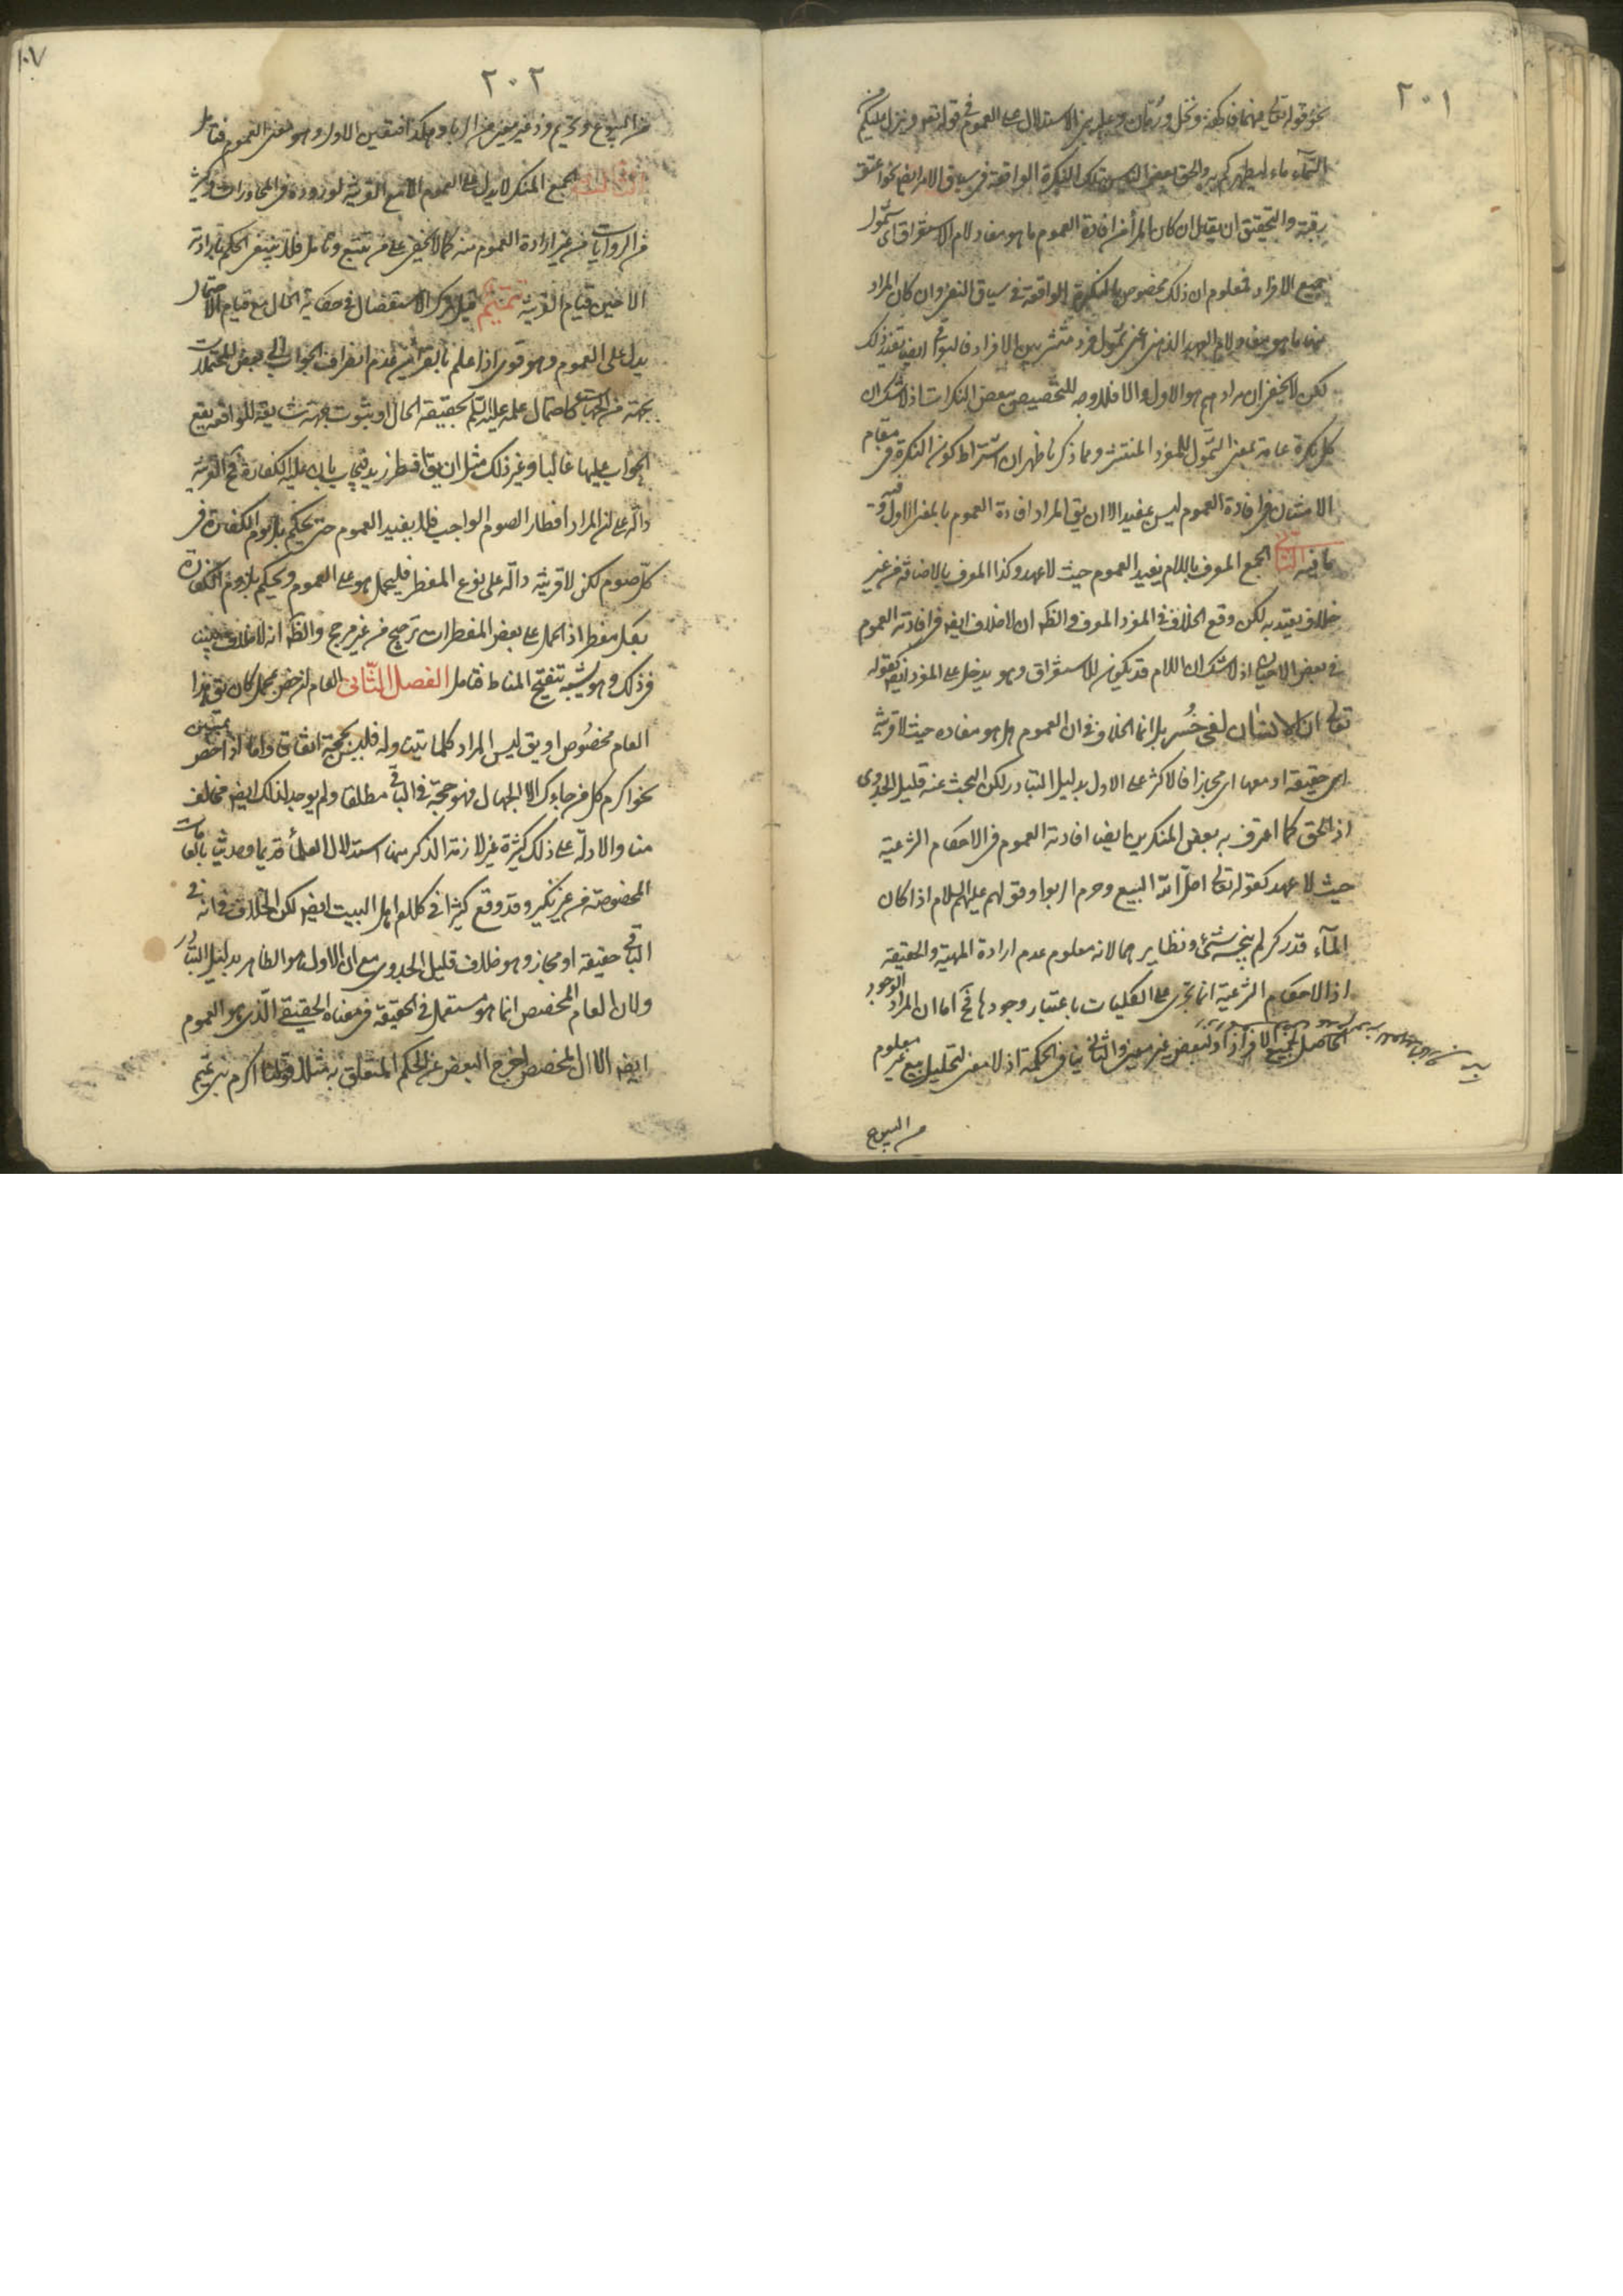 ٢٠١
نحو قوله تعالى فيهما فاكهة ونخل ورمان وعليه يبنى الاستدلال على العموم في قوله تعالى وينزل عليكم من
السمآء ماء ليطهركم به والحق بعض بذلك النكرة الواقعة في سياق الامر ايضا نحو اعتق
رقبة والتحقيق ان يقال ان كان المراد من افادة العموم ما هو مفاد لام الاستغراق اى شمول
جميع الافراد فمعلوم ان ذلك مخصوص بالنكرة الواقعة في سياق النفى وان كان المراد
منها ما هو مفاد لام العهد الذهنى اعنى شمول فرد منتشر بين الافراد فالبواقى ايضا تفيد ذلك
لكن لا يخفى ان مرادهم هو الاول والا فلا وجه للتخصيص ببعض النكرات اذ لا شك ان
كل نكرة عامة بمعنى الشمول للفرد المنتشر ومما ذكرنا ظهر ان اشتراط كون النكرة في مقام
الامتنان في افادة العموم ليس بمفيد الا ان يق المراد افادة العموم بالمعنى الاول وفيه
ما فيه الثالث الجمع المعرف باللام يفيد العموم حيث لا عهد وكذا المعرف بالاضافة من غير
خلاف يعتد به لكن وقع الخلاف في المفرد المعرف والظ ان لا خلاف ايضا في افادته العموم
في بعض الاحيان اذ لا شك ان اللام قد يكون للاستغراق وهو يدخل على المفرد ايضا كقوله
تعالى ان الانسان لفى خُسر بل انما الخلاف في ان العموم هل هو مفاده حيث لا قرينة
اى حقيقة او معها اى مجازا فالاكثر على الاول بدليل التبادر لكن البحث عنه قليل الجدوى
اذ الحق كما اعترف به بعض المنكرين ايضا افادته العموم في الاحكام الشرعية
حيث لا عهد كقوله تعالى احلّ الله البيع وحرم الربوا وقولهم عليهم السلام اذا كان
المآء قدر كر لم ينجسه شئ ونظايرهما لانه معلوم عدم ارادة المهية والحقيقة
اذ الاحكام الشرعية انما تجرى على الكليات باعتبار وجودها فح اما ان المراد الوجود
الحاصل لجميع الافراد او لبعض غير معين والثانى ينافى الحكمة اذ لا معنى لتحليل بيع غير معلوم
من البيوع
٢٠٢
١٠٧
من البيوع وتحريم فرد غير معين من الربا وهكذا فتعين الاول وهو معنى العموم فتامل
الجمع المنكر لا يدل على العموم الا مع القرينة لوروده في المحاورات وكثير
من الروايات من غير ارادة العموم منه كما لا يخفى على من تتبع وتامل فلا ينبغى الحكم بارادته
الا حين قيام القرينة تتميم قيل ترك الاستفصال في حكاية الحال مع قيام الاحتمال
يدل على العموم وهو قوى اذا علم بالقرائن عدم انصراف الجواب الى بعض المحتملات
بجهة من الجهات كاحتمال علمه عليه السلم بحقيقة الحال او بثبوت جهة شايعة للواقعة يقع
الجواب عليها غالبا وغير ذلك مثل ان يق افطر زيد فيجاب بان عليه الكفارة فح القرينة
دالة على ان المراد افطار الصوم الواجب فلا يفيد العموم حتى يحكم بلزوم الكفارة في
كل صوم لكن لا قرينة دالّة على نوع المفطر فليحمل هو على العموم ويحكم بلزوم الكفارة
بكل مفطر اذ الحمل على بعض المفطرات ترجيح من غير مرجح والظ انه لا خلاف بينهم
في ذلك وهو شبيه تنقيح المناط فتامل الفصل الثّانى العام ان خص بمجمل كان يق هذا
العام مخصُوص او يق ليس المراد كلما يتناوله فليس بحجة اتفاقا واما اذا خص بمبين
نحو اكرم كل من جاءك الا الجهال فهو حجة في الباقى مطلقا ولم يوجد لذلك ايضا مخالف
منا والادلّة على ذلك كثيرة غير لازمة الذكر منها استدلال العلمآء قديما وحديثا بالعامات
المخصوصة من غير نكير وقد وقع كثيرا في كلام اهل البيت ايضا لكن الخلاف في انه في
الباقى حقيقة او مجاز وهو خلاف قليل الجدوى مع ان الاول هو الظاهر بدليل التبادر
ولان العام المخصص انما هو مستعمل في الحقيقة في معناه الحقيقى الّذى هو العموم
ايضا الا ان المخصص اخرج البعض عن الحكم المتعلق به مثلا قولنا اكرم بنى تميم